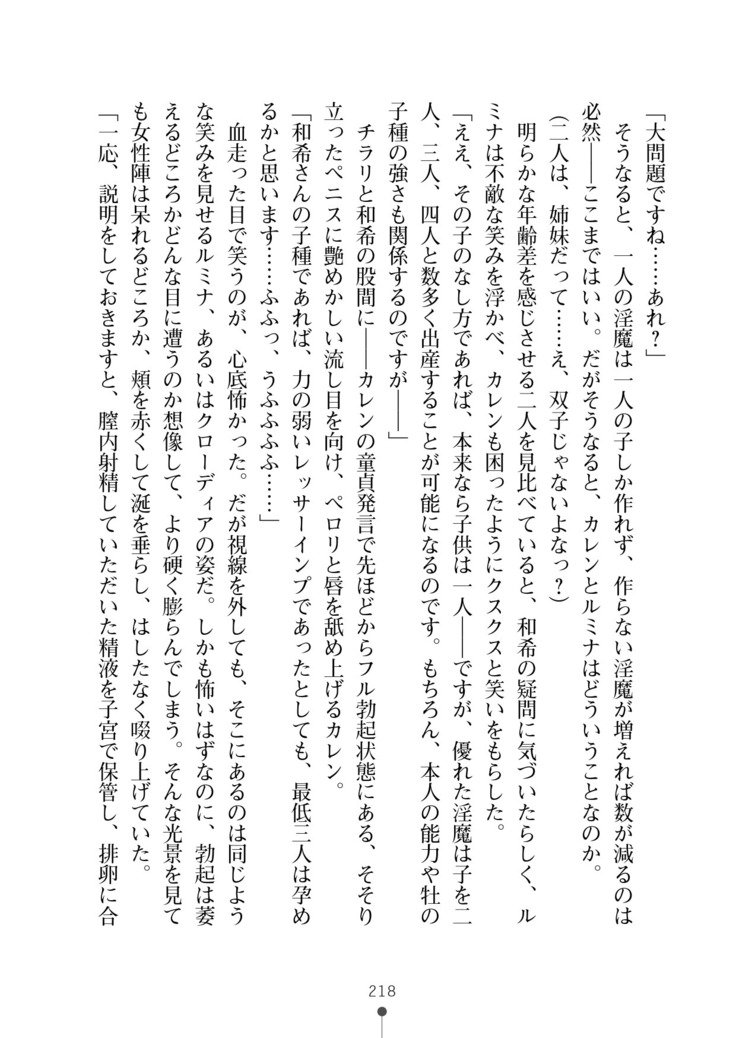 「大問題ですね……あれ？」
　そうなると、一人の淫魔は一人の子しか作れず、作らない淫魔が増えれば数が減るのは
必然――ここまではいい。だがそうなると、カレンとルミナはどういうことなのか。
（二人は、姉妹だって……え、双子じゃないよなっ？）
　明らかな年齢差を感じさせる二人を見比べていると、和希の疑問に気づいたらしく、ル
ミナは不敵な笑みを浮かべ、カレンも困ったようにクスクスと笑いをもらした。
「ええ、その子のなし方であれば、本来なら子供は一人――ですが、優れた淫魔は子を二
人、三人、四人と数多く出産することが可能になるのです。もちろん、本人の能力や牡の
子種の強さも関係するのですが――」
　チラリと和希の股間に――カレンの童貞発言で先ほどからフル勃起状態にある、そそり
立ったペニスに艶めかしい流し目を向け、ペロリと唇を舐め上げるカレン。
「和希さんの子種であれば、力の弱いレッサーインプであったとしても、最低三人は孕め
るかと思います……ふふっ、うふふふふ……」
　血走った目で笑うのが、心底怖かった。だが視線を外しても、そこにあるのは同じよう
な笑みを見せるルミナ、あるいはクローディアの姿だ。しかも怖いはずなのに、勃起は萎
えるどころかどんな目に遭うのか想像して、より硬く膨らんでしまう。そんな光景を見て
も女性陣は呆れるどころか、頬を赤くして涎を垂らし、はしたなく啜り上げていた。
「一応、説明をしておきますと、膣内射精していただいた精液を子宮で保管し、排卵に合
218